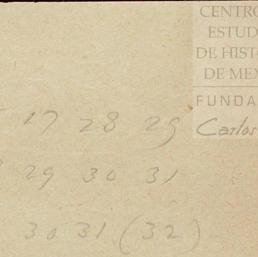 CENTRO
ESTUD
DE HISTO
DE MEX
FUNDA
Carlos
27 28 29
29 30 31
30 31 (32)